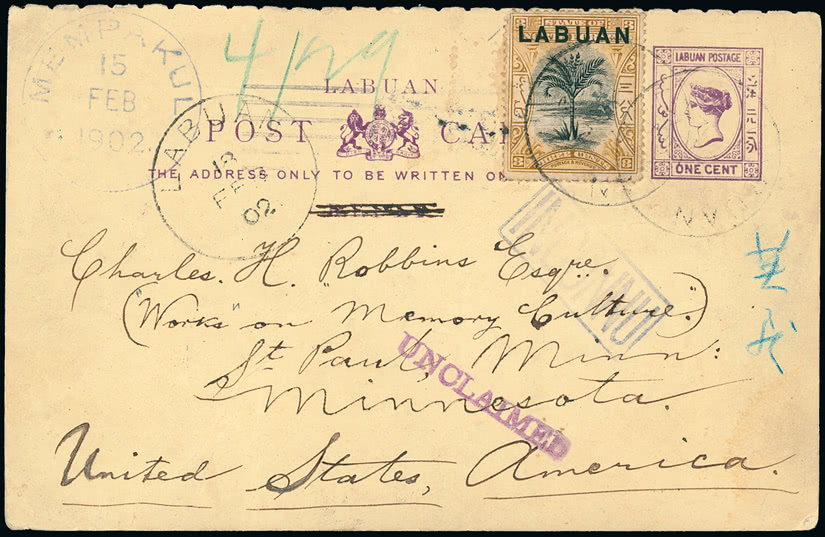 MEMPAKUL
15
FEB
1902.
4/29
LABUAN
POST CA
THE ADDRESS ONLY TO BE WRITTEN ON
LABUAN
18
FEB
02
STATE OF
LABUAN
3 3
LABUAN POSTAGE
ONE CENT
Charles. H. Robbins Esqre.
("Works" on Memory Culture.)
St Paul, Minn:
Minnesota.
United States, America.
UNCLAIMED